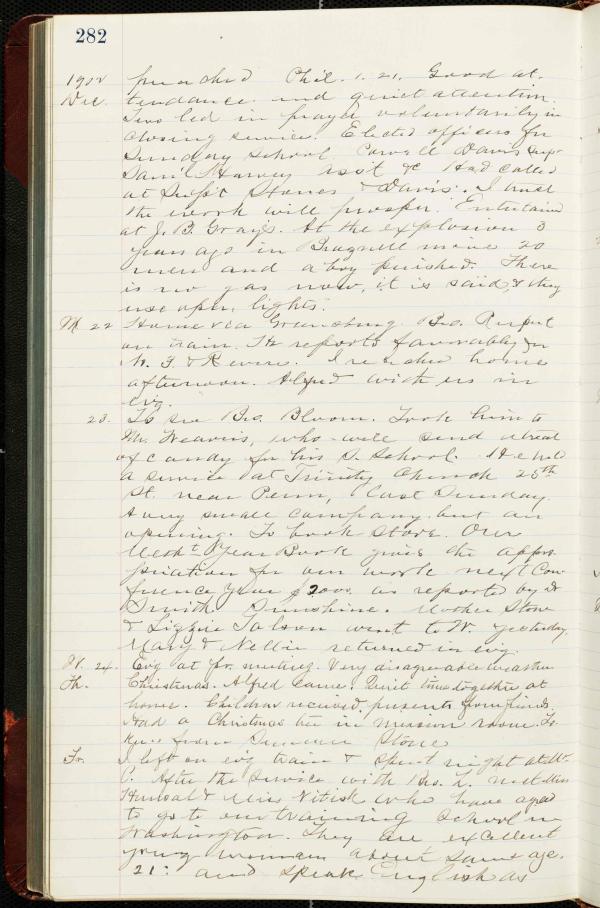 282
1902 preached Phil. 1. 21. Good at-
Dec. tendance and quiet attention.
Two led in prayer voluntarily in
closing service. Elected officers for
Sunday School. Powell Davis Supt
Saml Harvey asst &c Had called
at Supt Stones & Davis'. I trust
the work will prosper. Entertained
at J. B. Gray's. At the explosion 3
years ago in Braznell mine 20
men and a boy perished. There
is no gas now, it is said, & they
use open lights.
M. 22 Home via Greensburg. Bro.
on train. He reports favorably for
I reached home
afternoon. Alfred with us in
evg.
23. To see Bro. Bloom. Took him to
Mr. Weavers, who will send a treat
of candy for his S. School. He held
a service at Trinity Church 25th
St. near Penn, last Sunday.
A very small company but an
opening. To book store. Our
Meth. Year Book gives the appro-
priation for our work next Con-
ference year $2000 as reported by Dr
Smith Sunshine. Mother Stone
& Lizzie went to W. yesterday.
Mary & Nellie returned in evg.
W. 24. Evg at pr. meeting. Very disagreeable weather
Th. Christmas. Alfred came. Quiet time together at
home. Children received presents from friends.
Had a Christmas tree in mission room.
from Stone
Fr. I left on evg train & spent night at Mc
C. After the service with Bro. L. met Miss
& Miss who have agreed
to go to our training school in
Washington. They are excellent
young women about same age.
21: and speak English as